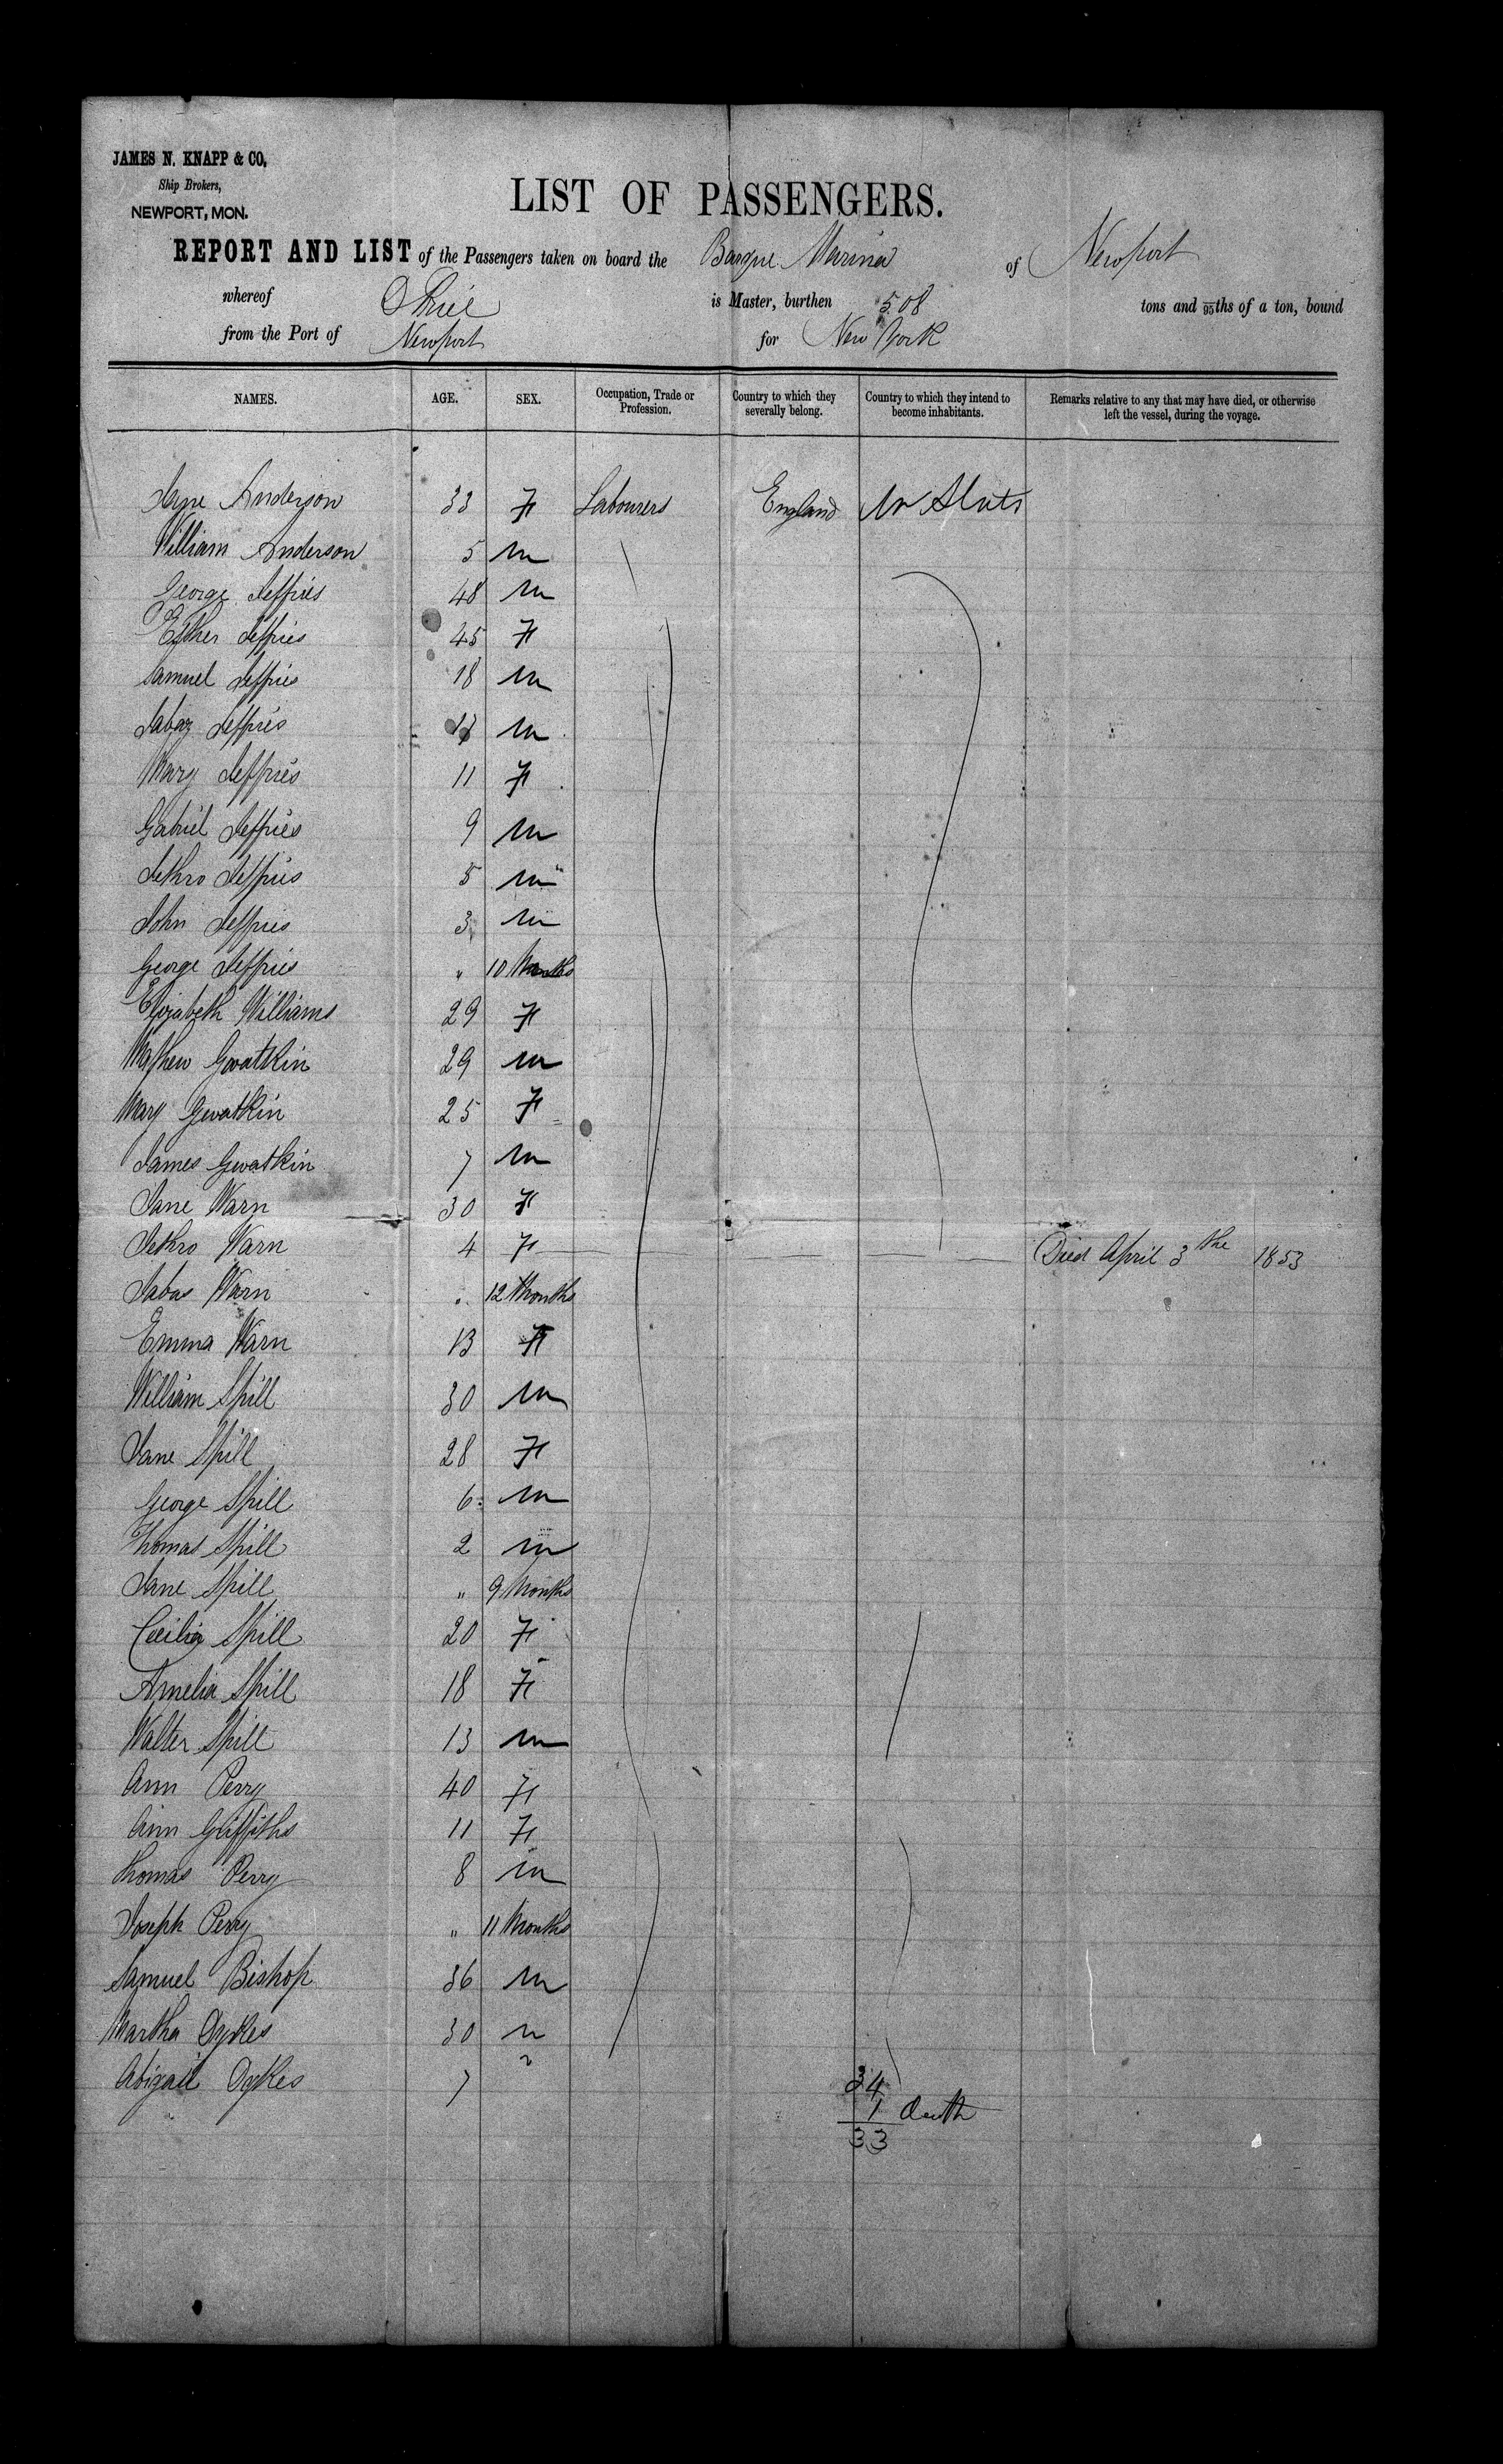 JAMES N. KNAPP & CO,
Ship Brokers,
NEWPORT, MON.
LIST OF PASSENGERS.
REPORT AND LIST of the Passengers taken on board the Barque Marina of Newport
whereof is Master, burthen 508 tons and 95ths of a ton, bound
from the Port of Newport for New York
NAMES. AGE. SEX. Occupation, Trade or Profession. Country to which they severally belong. Country to which they intend to become inhabitants. Remarks relative to any that may have died, or otherwise left the vessel, during the voyage.
Jane Anderson 33 F Labourers England U States
William Anderson 5 m
George Jeffries 48 m
Esther Jeffries 45 F
Samuel Jeffries 18 m
Jabaz Jeffries m
Mary Jeffries 11 F
Gabriel Jeffries 9 m
Jethro Jeffries 5 m
John Jeffries 3 m
George Jeffries " 10 Months
Elizabeth Williams 29 F
Mathew Gwatkin 29 m
Mary Gwatkin 25 F
James Gwatkin 7 m
Jane Warn 30 F
Jethro Warn 4 F Died April 3the 1853
Jabas Warn " 12 Months
Emma Warn 13 F
William Spill 30 m
Jane Spill 28 F
George Spill 6 m
Thomas Spill 2 m
Jane Spill " 9 Months
Cecilia Spill 20 F
Amelia Spill 18 F
Walter Spill 13 m
Ann Perry 40 F
Ann Griffiths 11 F
Thomas Perry 8 m
Joseph Perry " 11 Months
Samuel Bishop 36 m
Martha Dykes 30 "
Abigail Dykes 7 "
34
1 death
33